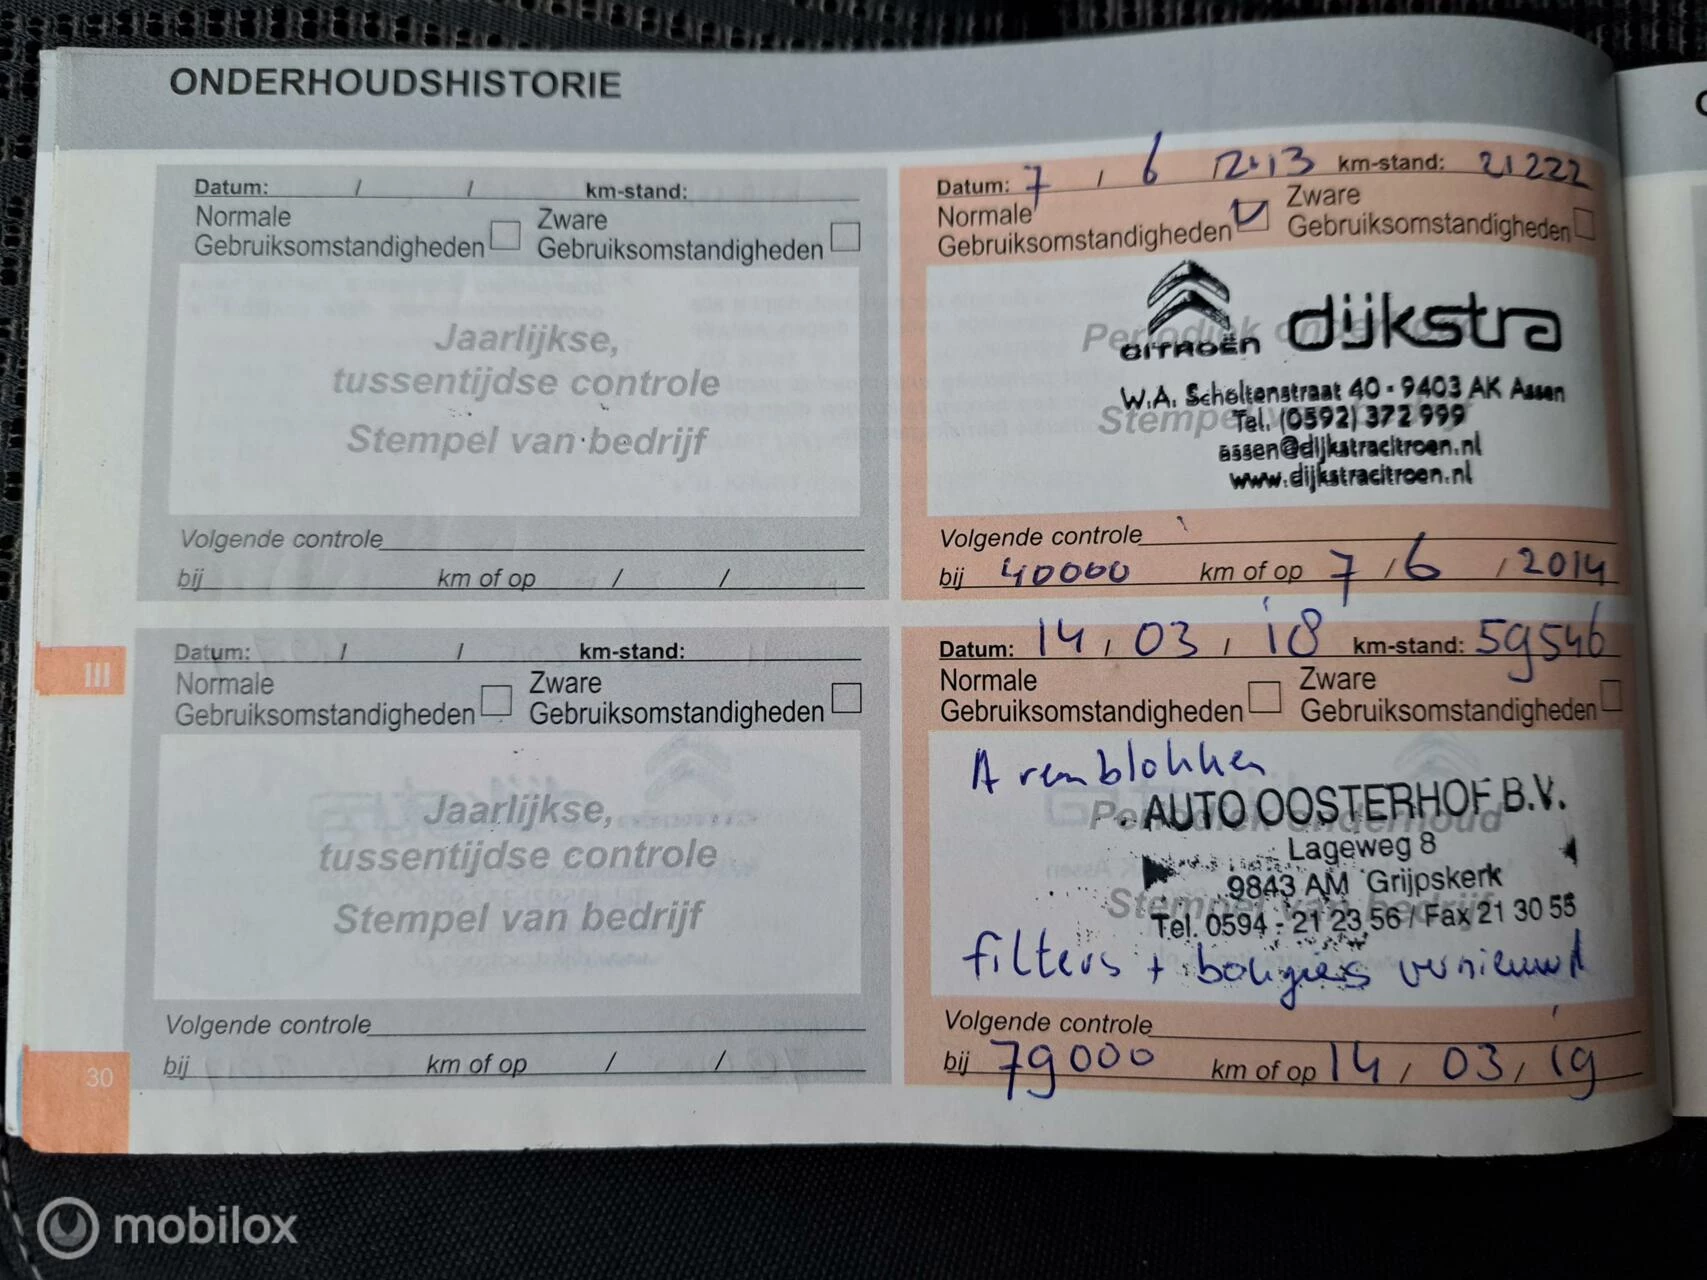 ONDERHOUDSHISTORIE
Datum: / / km-stand:
Normale
Gebruiksomstandigheden
Zware
Gebruiksomstandigheden
Jaarlijkse,
tussentijdse controle
Stempel van bedrijf
Volgende controle
bij km of op / /
Datum: 7 / 6 / 2013 km-stand: 21222
Normale
Gebruiksomstandigheden
Zware
Gebruiksomstandigheden
Periodiek onderhoud
CITROËN dijkstra
W.A. Scholtenstraat 40 - 9403 AK Assen
Stempel van bedrijf
Tel. (0592) 372 999
assen@dijkstracitroen.nl
www.dijkstracitroen.nl
Volgende controle
bij 40000 km of op 7 / 6 / 2014
III
Datum: / / km-stand:
Normale
Gebruiksomstandigheden
Zware
Gebruiksomstandigheden
Jaarlijkse,
tussentijdse controle
Stempel van bedrijf
Volgende controle
bij km of op / /
Datum: 14 / 03 / 18 km-stand: 59546
Normale
Gebruiksomstandigheden
Zware
Gebruiksomstandigheden
A remblokken
AUTO OOSTERHOF B.V.
Periodiek onderhoud
Lageweg 8
9843 AM Grijpskerk
Stempel van bedrijf
Tel. 0594 - 21 23 56 / Fax 21 30 55
filters + bougies vernieuwd
Volgende controle
bij 79000 km of op 14 / 03 / 19
30
mobilox